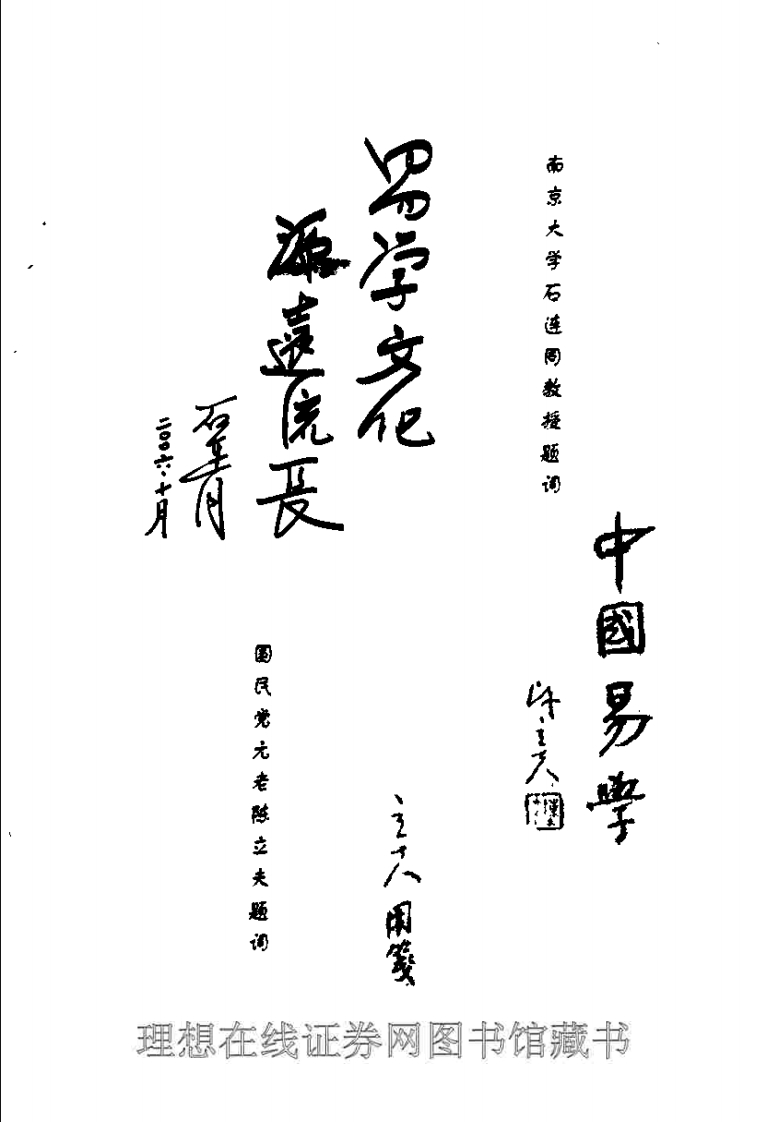 南京大学石连同教授题词
易学文化
源远流长
二〇〇六·十月
中國易學
陈立夫
立夫用箋
国民党元老陈立夫题词
理想在线证券网图书馆藏书